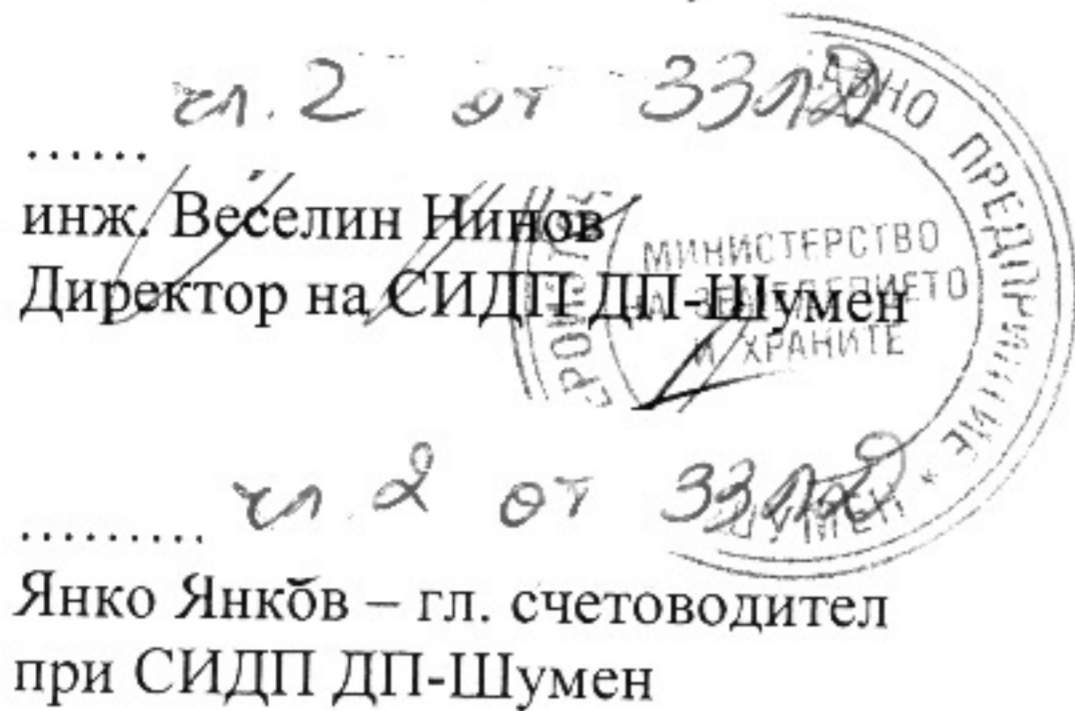 чл. 2 от ЗЗЛД
......
инж. Веселин Нинов
Директор на СИДП ДП-Шумен
МИНИСТЕРСТВО
НА ЗЕМЕДЕЛИЕТО
И ХРАНИТЕ
ПРЕДПРИЯТИЕ * ШУМЕН
чл 2 от ЗЗЛД
.........
Янко Янков – гл. счетоводител
при СИДП ДП-Шумен